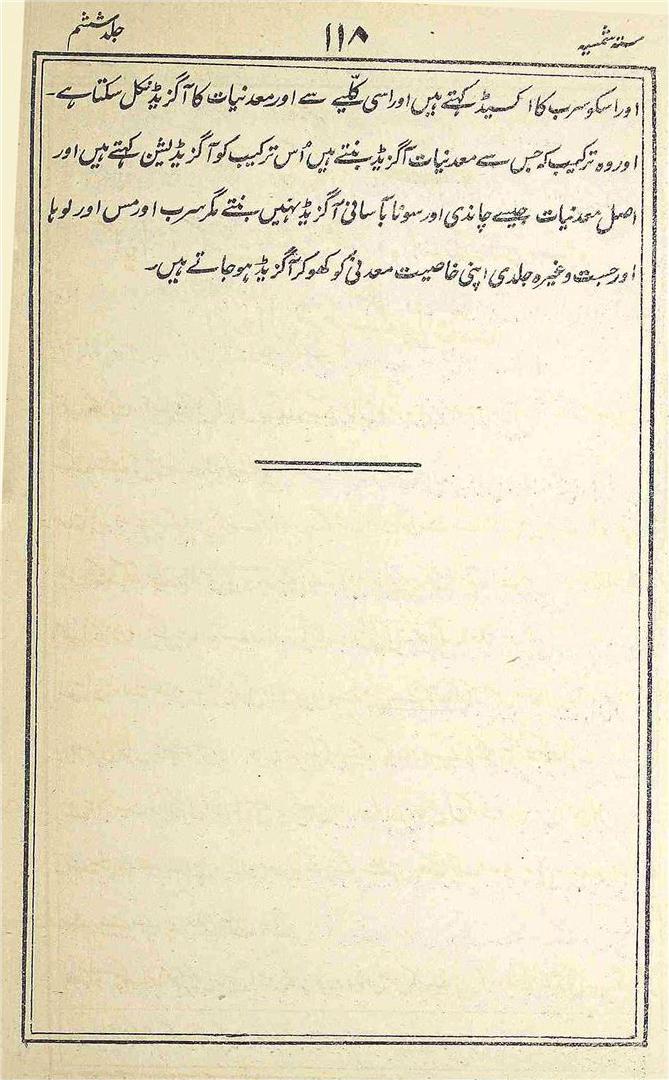 ستہ شمسیہ ۱۱۸ جلد ششم
اور اسکو سرب کا اکسیڈ کہتے ہیں اور اسی کلّیے سے اور معدنیات کا آگزیڈ نکل سکتا ہے۔
اور وہ ترکیب کہ جس سے معدنیات آگزیڈ بنتے ہیں اُس ترکیب کو آگزیڈیشن کہتے ہیں اور
اصل معدنیات جیسے چاندی اور سونا بآسانی آگزیڈ نہیں بنتے مگر سرب اور مس اور لوہا
اور جست وغیرہ جلدی اپنی خاصیت معدنی کو کھو کر آگزیڈ ہو جاتے ہیں۔